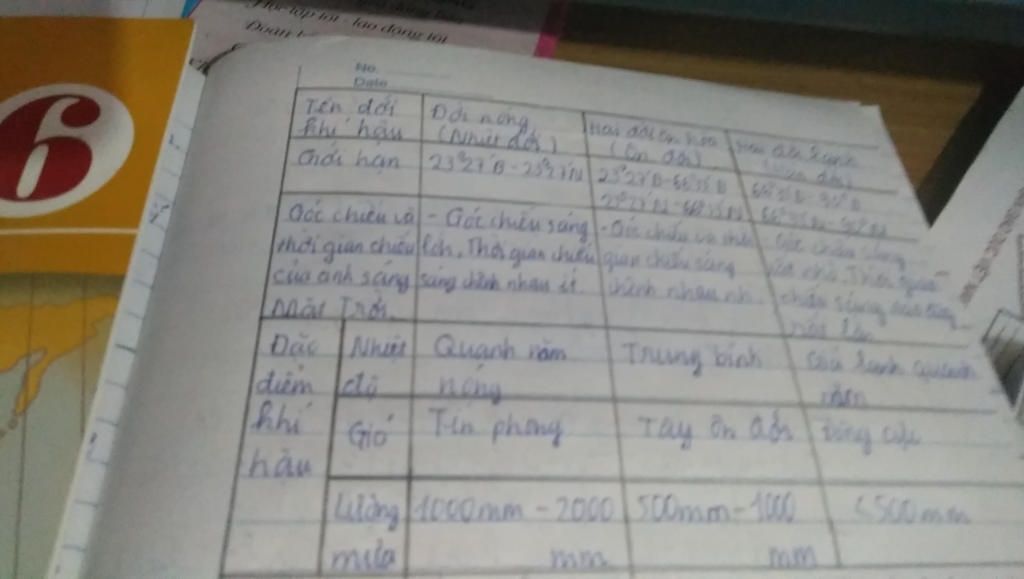 Học tập tốt - lao động tốt
Đoàn
6
No.
Date
Tên đới
khí hậu
Đới nóng
(Nhiệt đới)
Hai đới ôn hòa
(Ôn đới)
Hai đới lạnh
Giới hạn
23°27'B - 23°27'N
23°27'B - 66°33'B
23°27'N - 66°33'N
Góc chiếu và
thời gian chiếu
của ánh sáng
Mặt Trời.
- Góc chiếu sáng
lớn. Thời gian chiếu
sáng chênh nhau ít.
- Góc chiếu và thời
gian chiếu sáng
chênh nhau nh
Góc chiếu sáng
Thời gian
chiếu sáng
Đặc
điểm
khí
hậu
Nhiệt
độ
Quanh năm
nóng
Trung bình
Giá lạnh quanh
năm
Gió
Tín phong
Tây ôn đới
Đông cực
Lượng
mưa
1000mm - 2000
mm
500mm - 1000
mm
<500mm